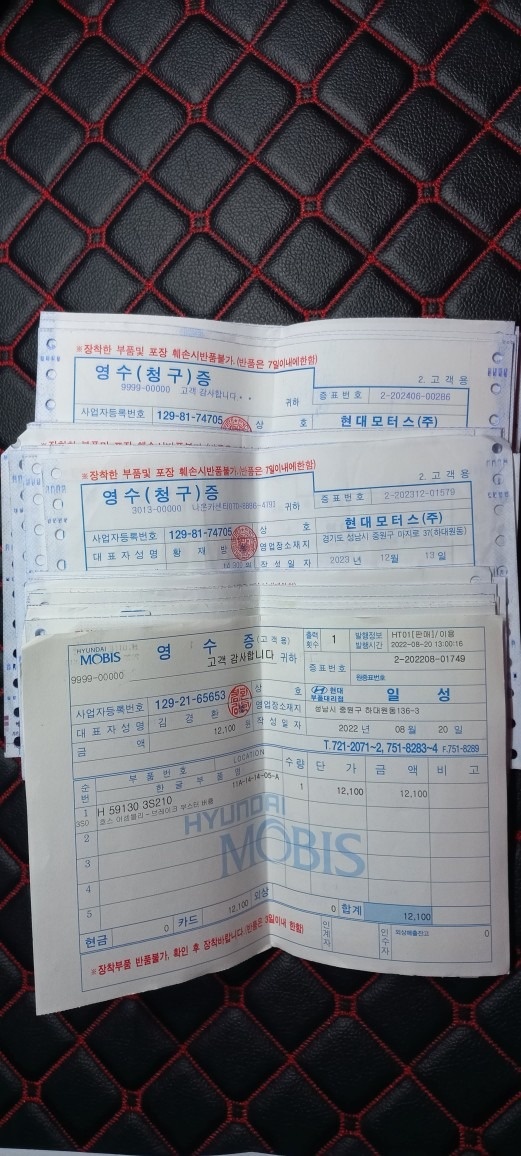 ※장착한 부품및 포장 훼손시반품불가.(반품은 7일이내에한함)
영수(청구)증
2. 고 객 용
9999-00000 고객 감사합니다·· 귀하
증 표 번 호 2-202406-00286
사업자등록번호 129-81-74705 상 호 현대모터스(주)
※장착한 부품및 포장 훼손시반품불가.(반품은 7일이내에한함)
영수(청구)증
2. 고 객 용
3013-00000 귀하
증 표 번 호 2-202312-01579
사업자등록번호 129-81-74705 상 호 현대모터스(주)
경기도 성남시 중원구 마지로 37(하대원동)
대 표 자 성 명 황 재 영업장소재지
작 성 일 자 2023 년 12월 13 일
HYUNDAI MOBIS
영 수 증(고 객 용)
고객 감사합니다 귀하
9999-00000
출력횟수 1 발행정보 HT01[판매]/이용
발행시간 2022-08-20 13:00:16
증표번호 2-202208-01749
원증표번호
사업자등록번호 129-21-65653 상 호 현대 부품대리점 일 성
대 표 자 성 명 김 경 환 영업장소재지 성남시 중원구 하대원동136-3
금 액 12,100 원 작 성 일 자 2022 년 08 월 20 일
T.721-2071~2, 751-8283~4 F.751-8289
순번 부 품 번 호 LOCATION 수량 단 가 금 액 비 고
한 글 부 품 명 11A-14-14-05-A
1 H 59130 3S210 1 12,100 12,100
호스 어셈블리-브레이크 부스터 버큠
HYUNDAI
MOBIS
2
3
4
5
현금 0 카드 12,100 외상 0 합계 12,100
인계자 인수자 외상매출잔고 0
※장착부품 반품불가, 확인 후 장착바랍니다.(반품은 3일이내 한함)